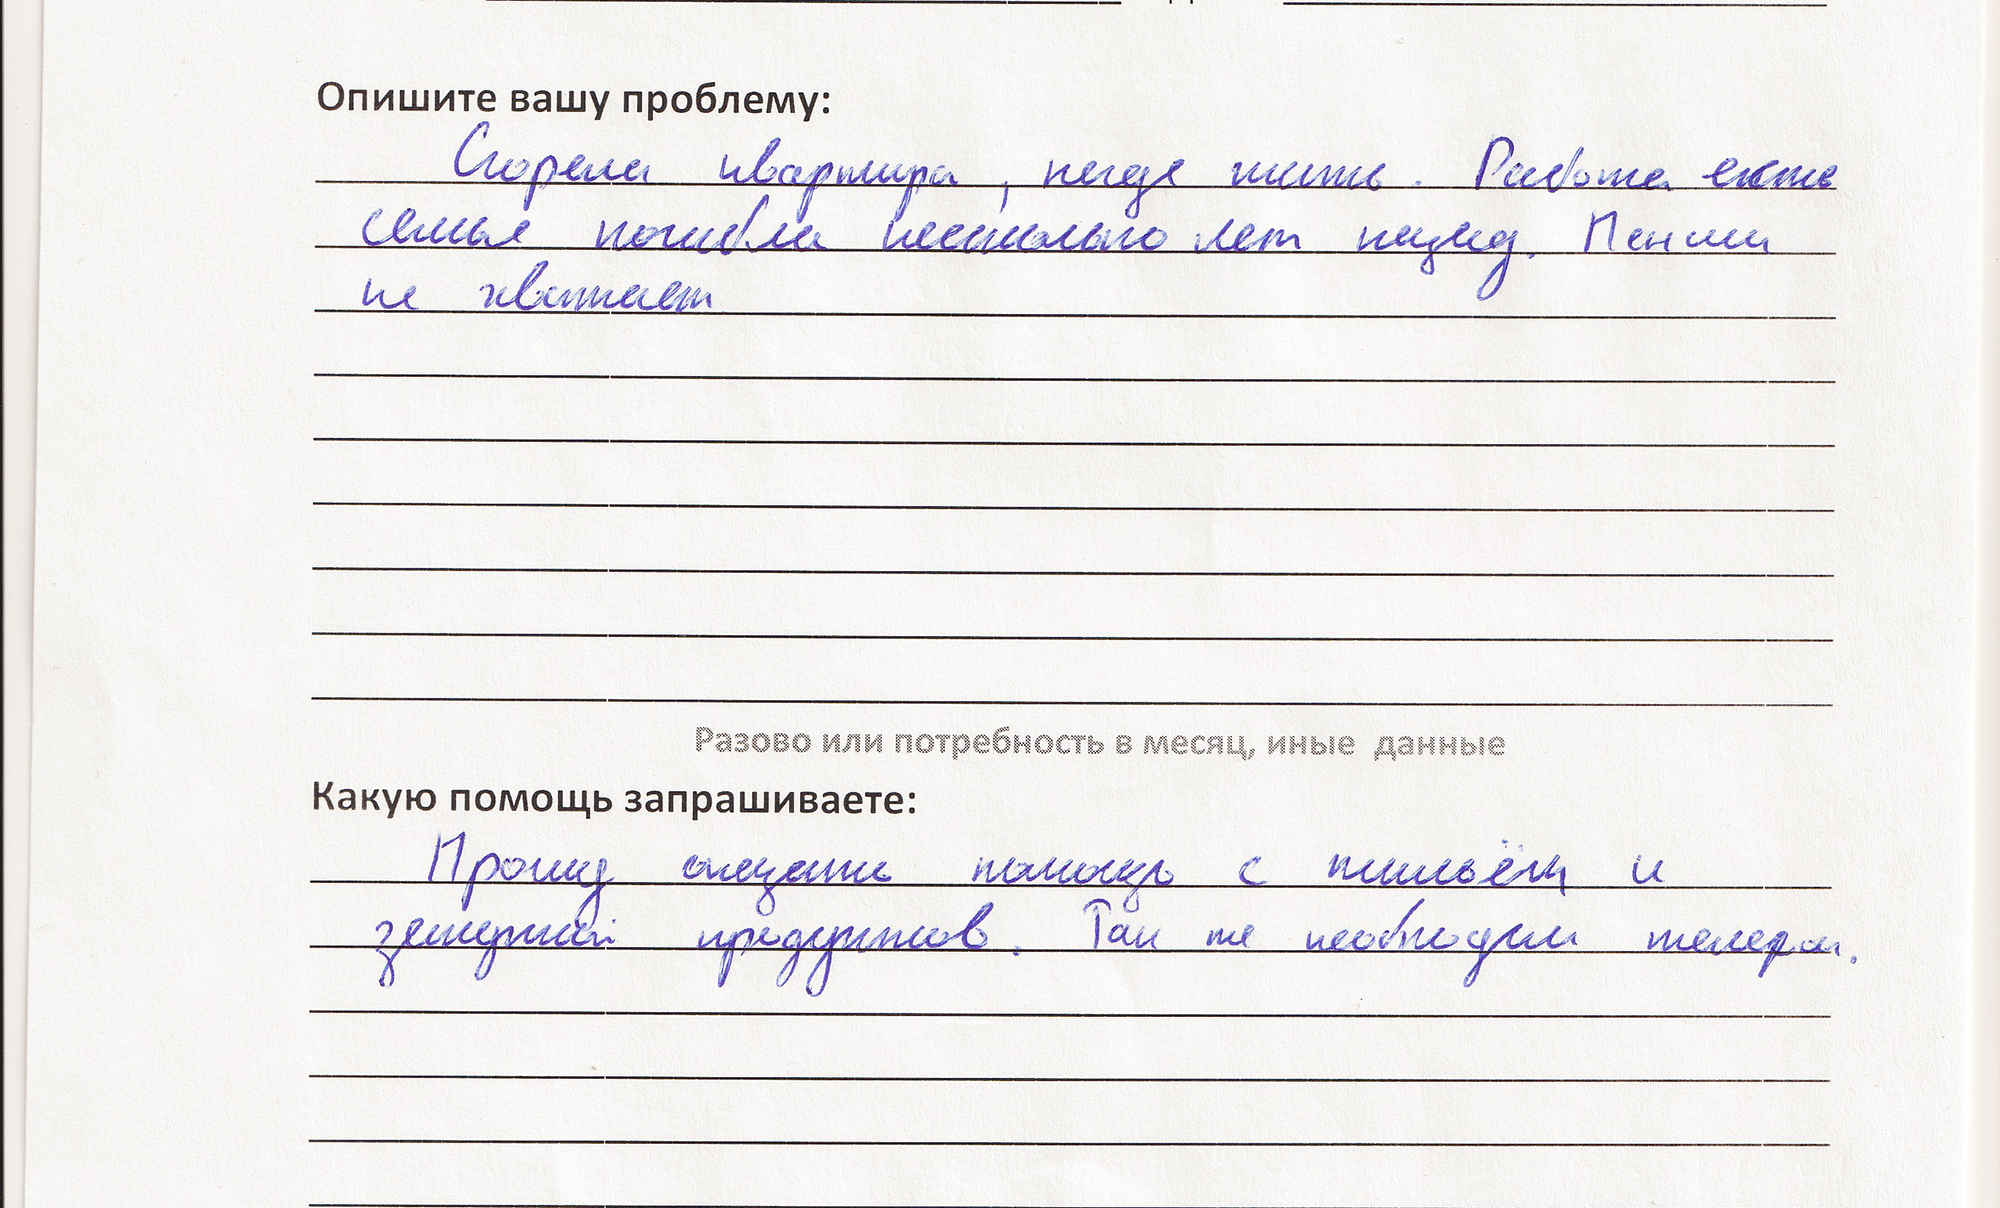 Опишите вашу проблему:
Сгорела квартира, негде жить. Работа есть
семья погибла несколько лет назад. Пенсии
не хватает
Разово или потребность в месяц, иные данные
Какую помощь запрашиваете:
Прошу оказать помощь с жильём и
закупкой продуктов. Так же необходим